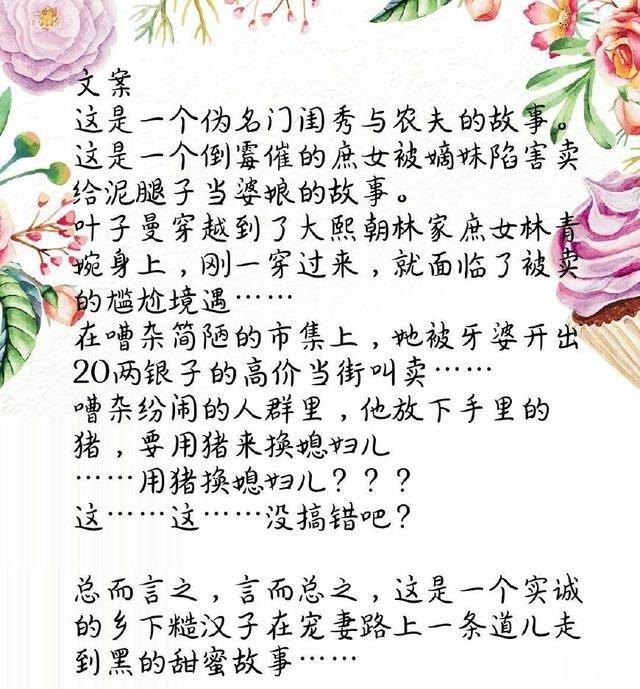 文案
这是一个伪名门闺秀与农夫的故事。
这是一个倒霉催的庶女被嫡妹陷害卖
给泥腿子当婆娘的故事。
叶子曼穿越到了大熙朝林家庶女林青
婉身上，刚一穿过来，就面临了被卖
的尴尬境遇……
在嘈杂简陋的市集上，她被牙婆开出
20两银子的高价当街叫卖……
嘈杂纷闹的人群里，他放下手里的
猪，要用猪来换媳妇儿
……用猪换媳妇儿？？？
这……这……没搞错吧？
总而言之，言而总之，这是一个实诚
的乡下糙汉子在宠妻路上一条道儿走
到黑的甜蜜故事……